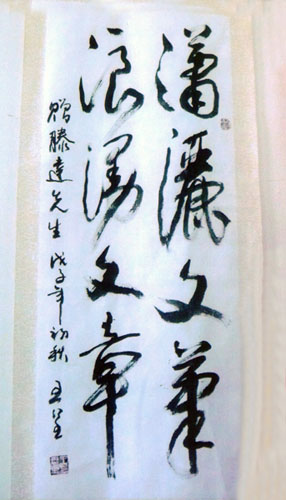 潇灑文笔
浪漫文章
赠滕達先生 戊子年初秋